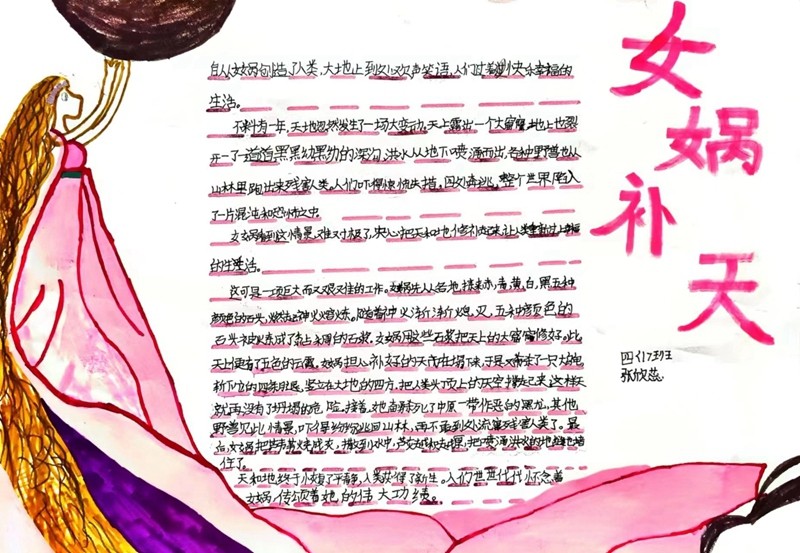 女娲补天
四(1)班
张欣蕊
自从女娲创造了人类,大地上到处欢声笑语,人们过着快乐幸福的
生活。
不料有一年,天地忽然发生了一场大变动,天上露出一个大窟窿,地上也裂
开了一道道黑黑幼黑幼的深沟,洪水从地下喷涌而出,各种野兽也从
山林里跑出来残害人类。人们吓得惊慌失措,四处奔逃,整个世界陷入
了一片混沌和恐怖之中。
女娲看到这情景,难过极了,决心把天和地修补起来,让人类重新过上幸福
的生活。
这可是一项巨大而又艰难的工作。女娲先从各地捡来赤、青、黄、白、黑五种
颜色的石头,燃起神火熔炼。随着神火渐渐熄灭,五种颜色的
石头被炼成了粘稠的石浆,女娲用这些石浆把天上的大窟窿修好。此
天上便有了五色的云霞。女娲担心补好的天再坍塌下来,于是又捕来了一只大龟
斩下它的四条腿,竖立在大地的四方,把人类头顶上的天空撑起来,这样天
就再没有了坍塌的危险。接着,她杀死了中原一带作恶的黑龙,其他
野兽见此情景,吓得纷纷逃回山林,再不敢到处流窜残害人类了。最
后,女娲把芦苇烧成灰,撒到水中,把喷涌洪水的地缝也堵
住了。
天和地终于恢复了平静,人类获得了新生。人们世世代代怀念着
女娲,传颂着她的伟大功绩。